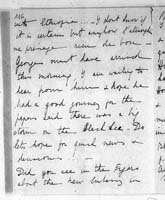 into Ethiopia ... I don't know if
it is certain but anyhow I
me
Georgie must have arrived
this morning. I am waiting to
hear from him & hope he
had a good journey for the
papers said there was a big
storm on the Black Sea. - Do
lets hope for good news on
-
Did you see in the Papers
about the new embassy in